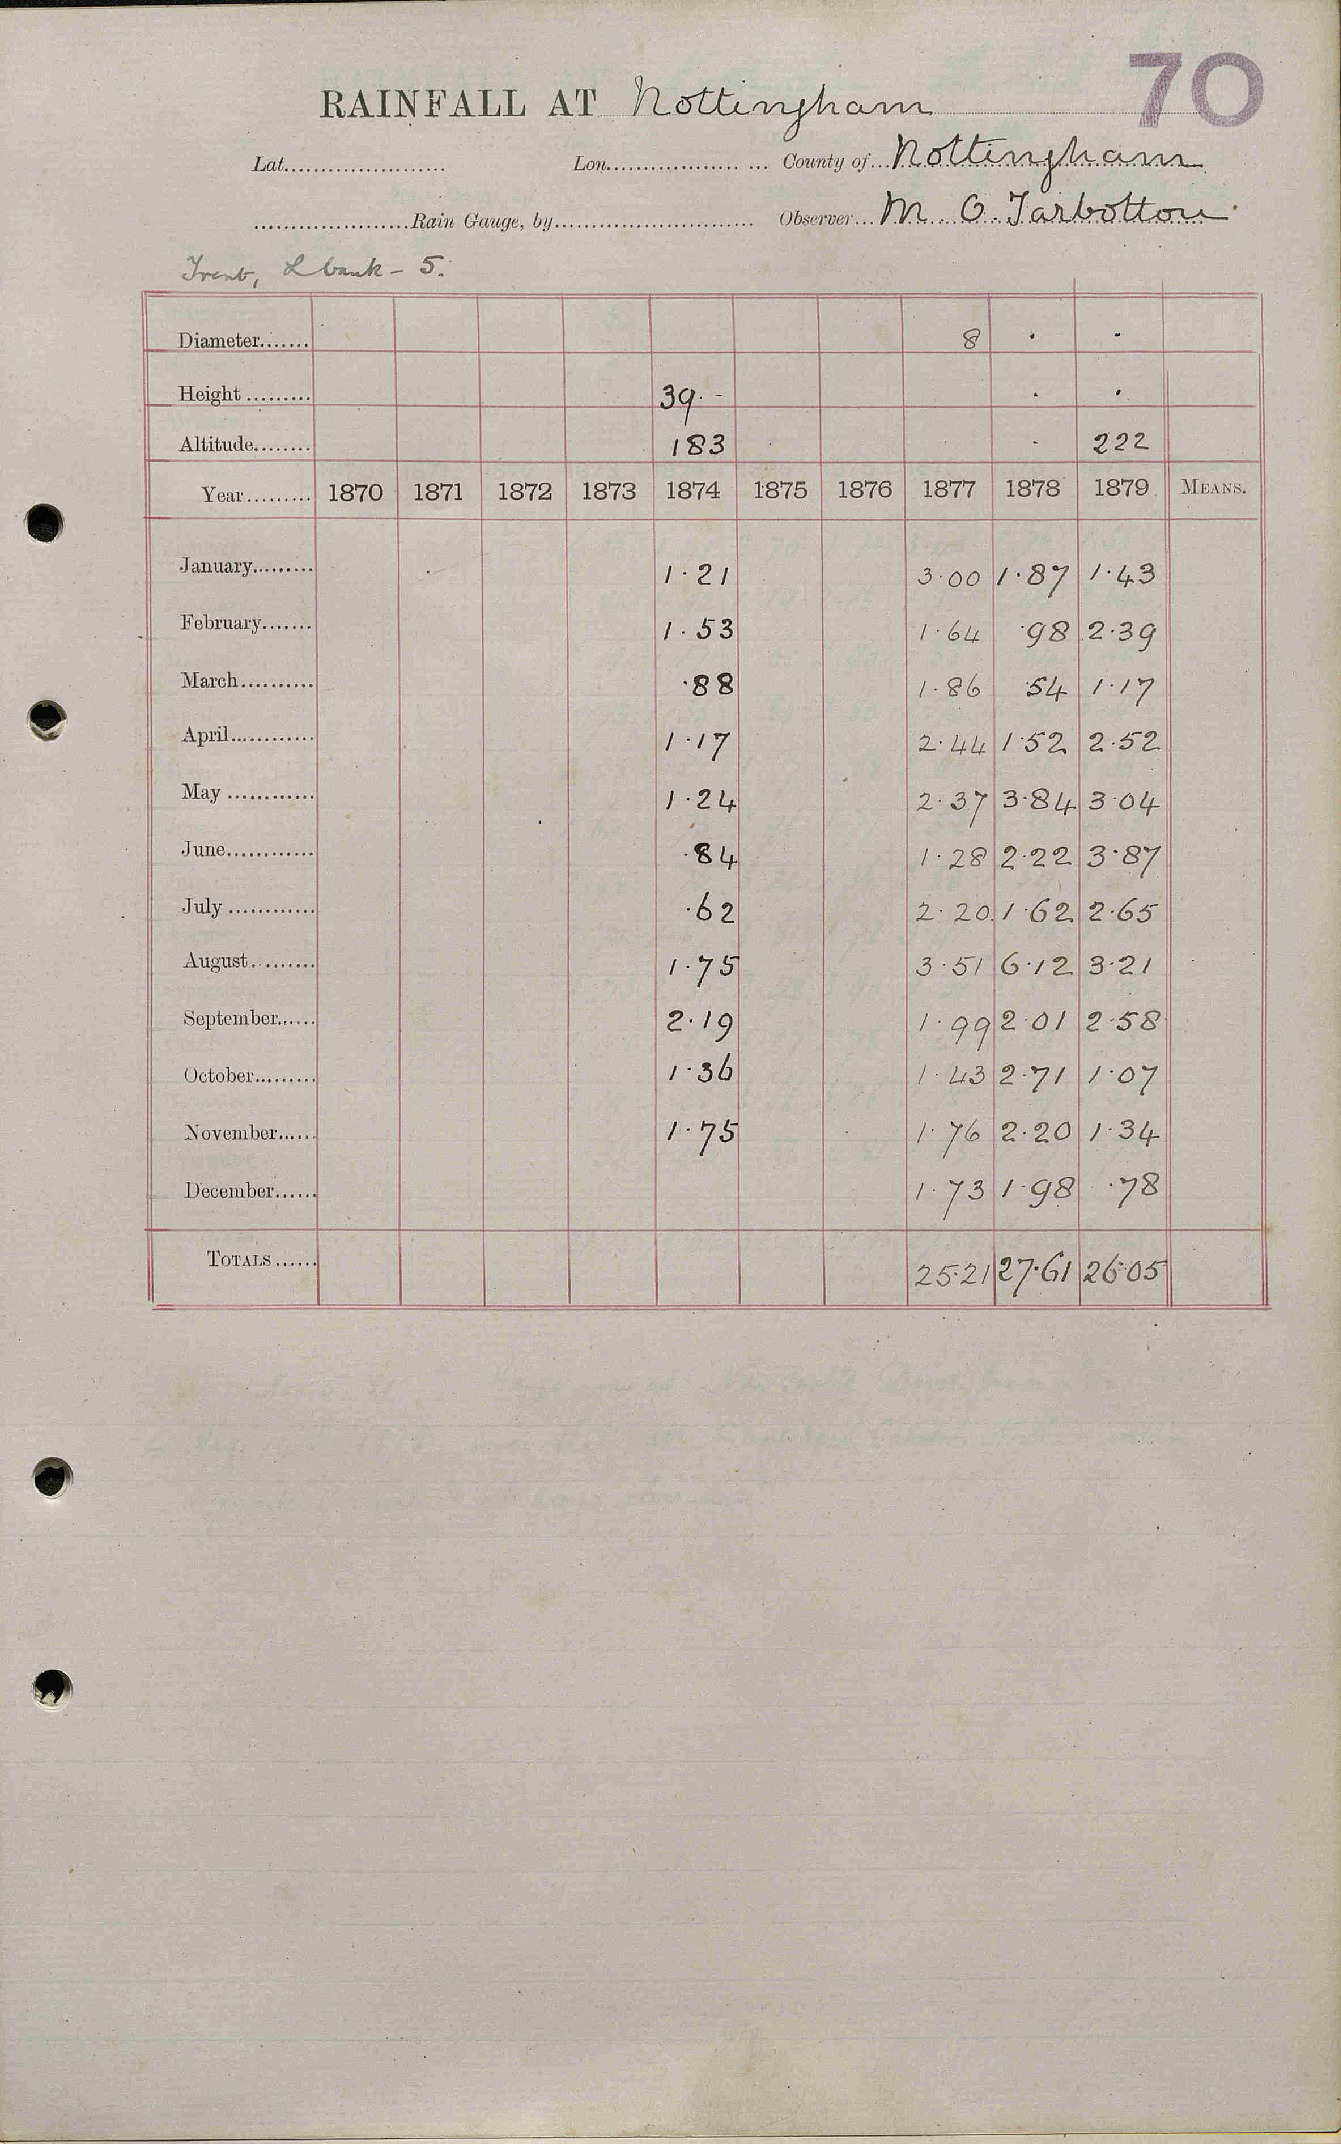 70
RAINFALL AT Nottingham
Lat...................... Lon.................. ... County of... Nottingham
......................Rain Gauge, by........................... Observer... M. O. Tarbotton
Trent, L bank - 5.
Diameter....... 8 · ·
Height ......... 39. - · ·
Altitude........ 183 · 222
Year......... 1870 1871 1872 1873 1874 1875 1876 1877 1878 1879 MEANS.
January......... 1·21 3·00 1·87 1·43
February....... 1·53 1·64 ·98 2·39
March.......... ·88 1·86 ·54 1·17
April............ 1·17 2·44 1·52 2·52
May ............ 1·24 2·37 3·84 3·04
June............ ·84 1·28 2·22 3·87
July ............ ·62 2·20 1·62 2·65
August......... 1·75 3·51 6·12 3·21
September...... 2·19 1·99 2·01 2·58
October......... 1·36 1·43 2·71 1·07
November...... 1·75 1·76 2·20 1·34
December...... 1·73 1·98 ·78
TOTALS ...... 25·21 27·61 26·05